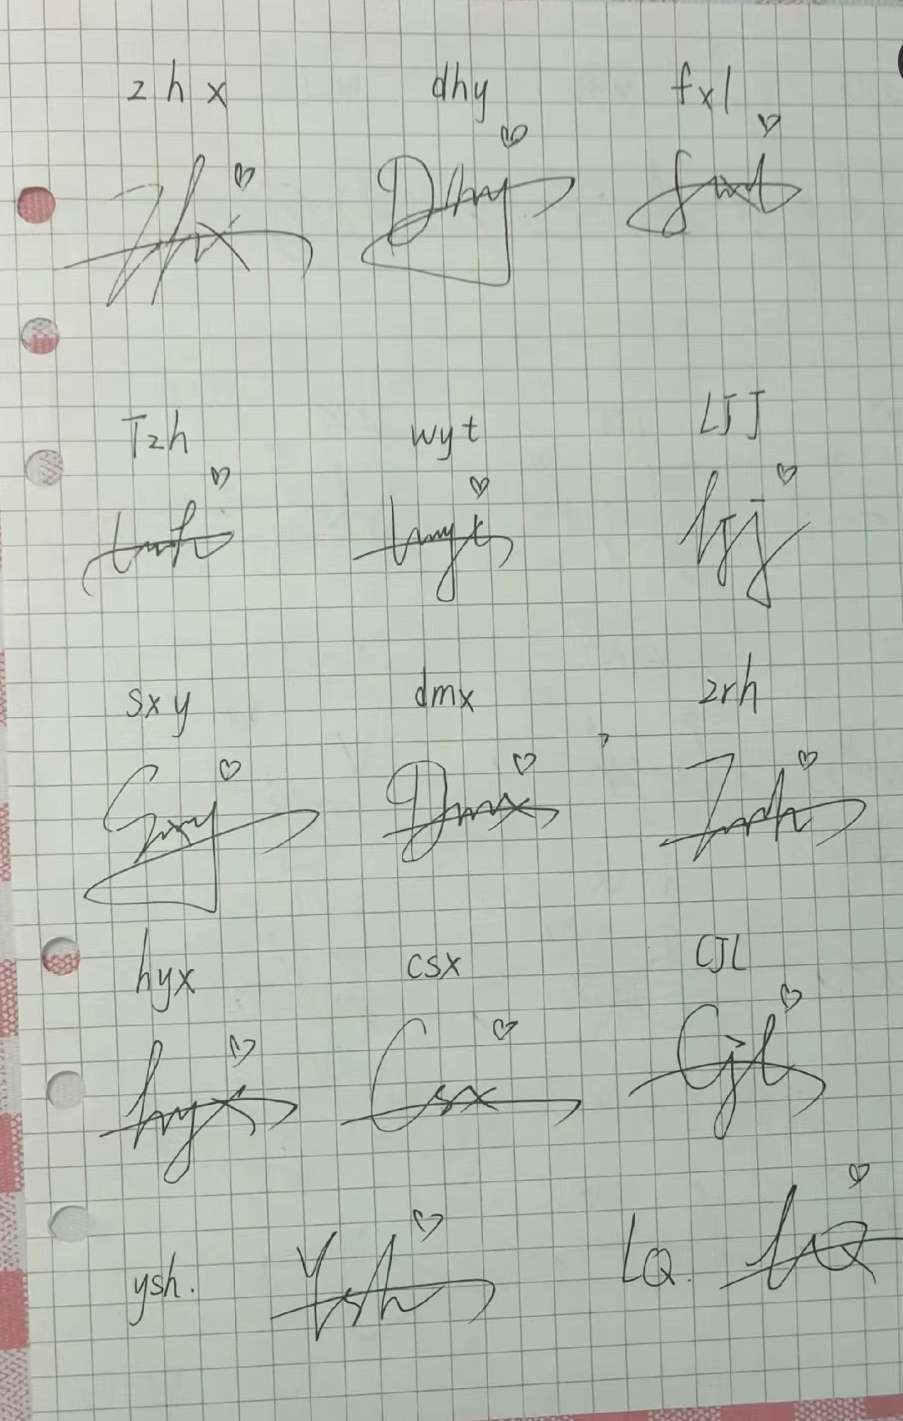 zhx dhy fxl
Zhx Dhy fxl
Tzh wyt LJJ
tzh wyt ljj
sxy dmx zrh
Sxy Dmx Zrh
hyx csx CJL
hyx Csx Cjl
ysh. Ysh LQ. LQ